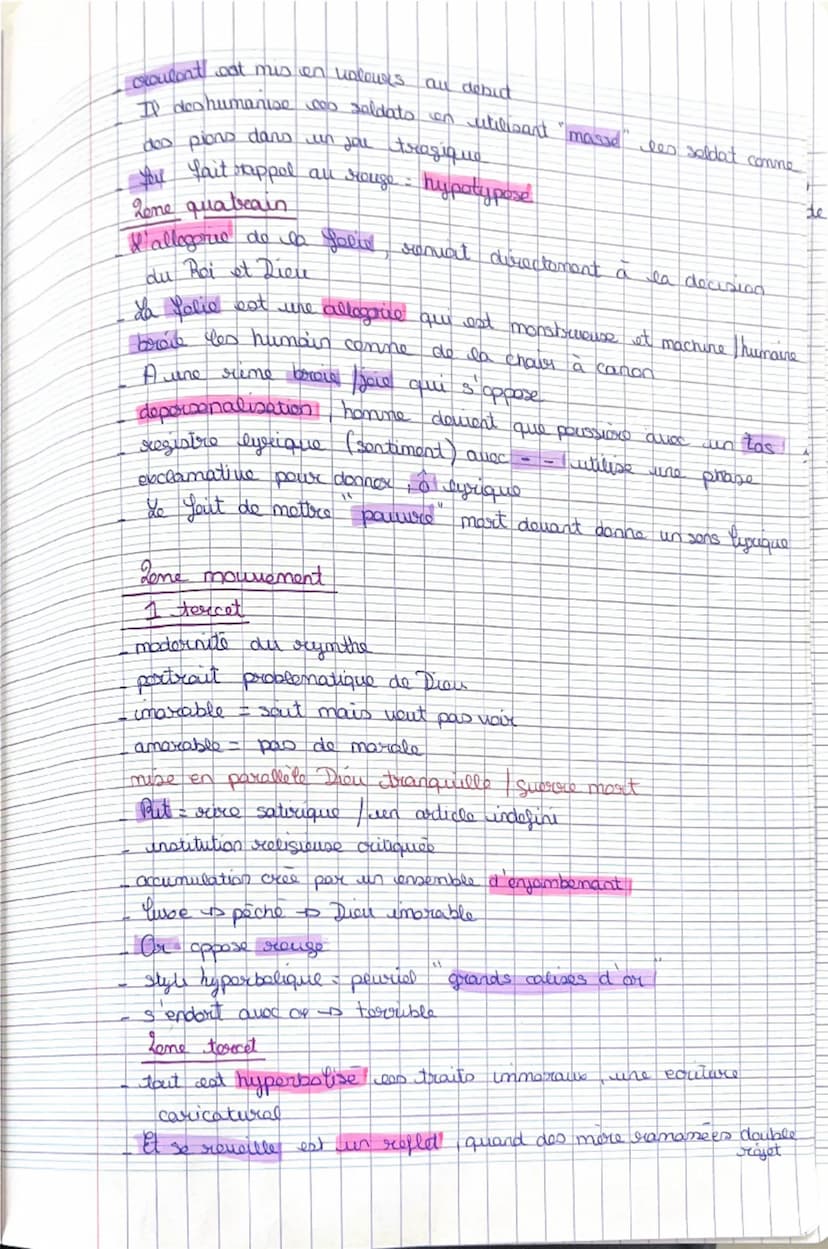 - croulant est mis en valeurs au debut
- Il deshumanise les soldats en utilisant "masse" les soldat comme
des pions dans un jeu tragique
- feu fait rappel au rouge = hypotypose
2eme quatrain
- L'allegorie de la folie, renvoit directement à la decision
du Roi et Dieu
- La folie est une allegorie qui est monstrueuse et machine / humaine
broie les humain comme de la chair à canon
- A une rime broie / joie qui s'oppose
- depersonalisation, homme devient que poussière avec un tas
- registre lyrique (sentiment) avec - - ! utilise une phrase
exclamative pour donner, ô lyrique
- Le fait de mettre "pauvre" mort devant donne un sens lyrique
2eme mouvement
1 tercet
- modernité du rymthe
- portrait problematique de Dieu
- imorable = sait mais veut pas voir
- amorable = pas de morale
mise en parallèle Dieu tranquille / guerre mort
- Rit = rire satirique / un article indefini
- institution religieuse critiquée
- accumulation crée par un ensemble d'enjambement
- luxe → pêché → Dieu imorable
- Or oppose rouge
- style hyperbolique = pluriel "grands calises d'or"
- s'endort avec ce → terrible
2eme tercet
- tout est hyperbolisé les traits immoraux, une ecriture
caricatural
- Et se reveille est un , quand des mère ramamées double
rejet
de